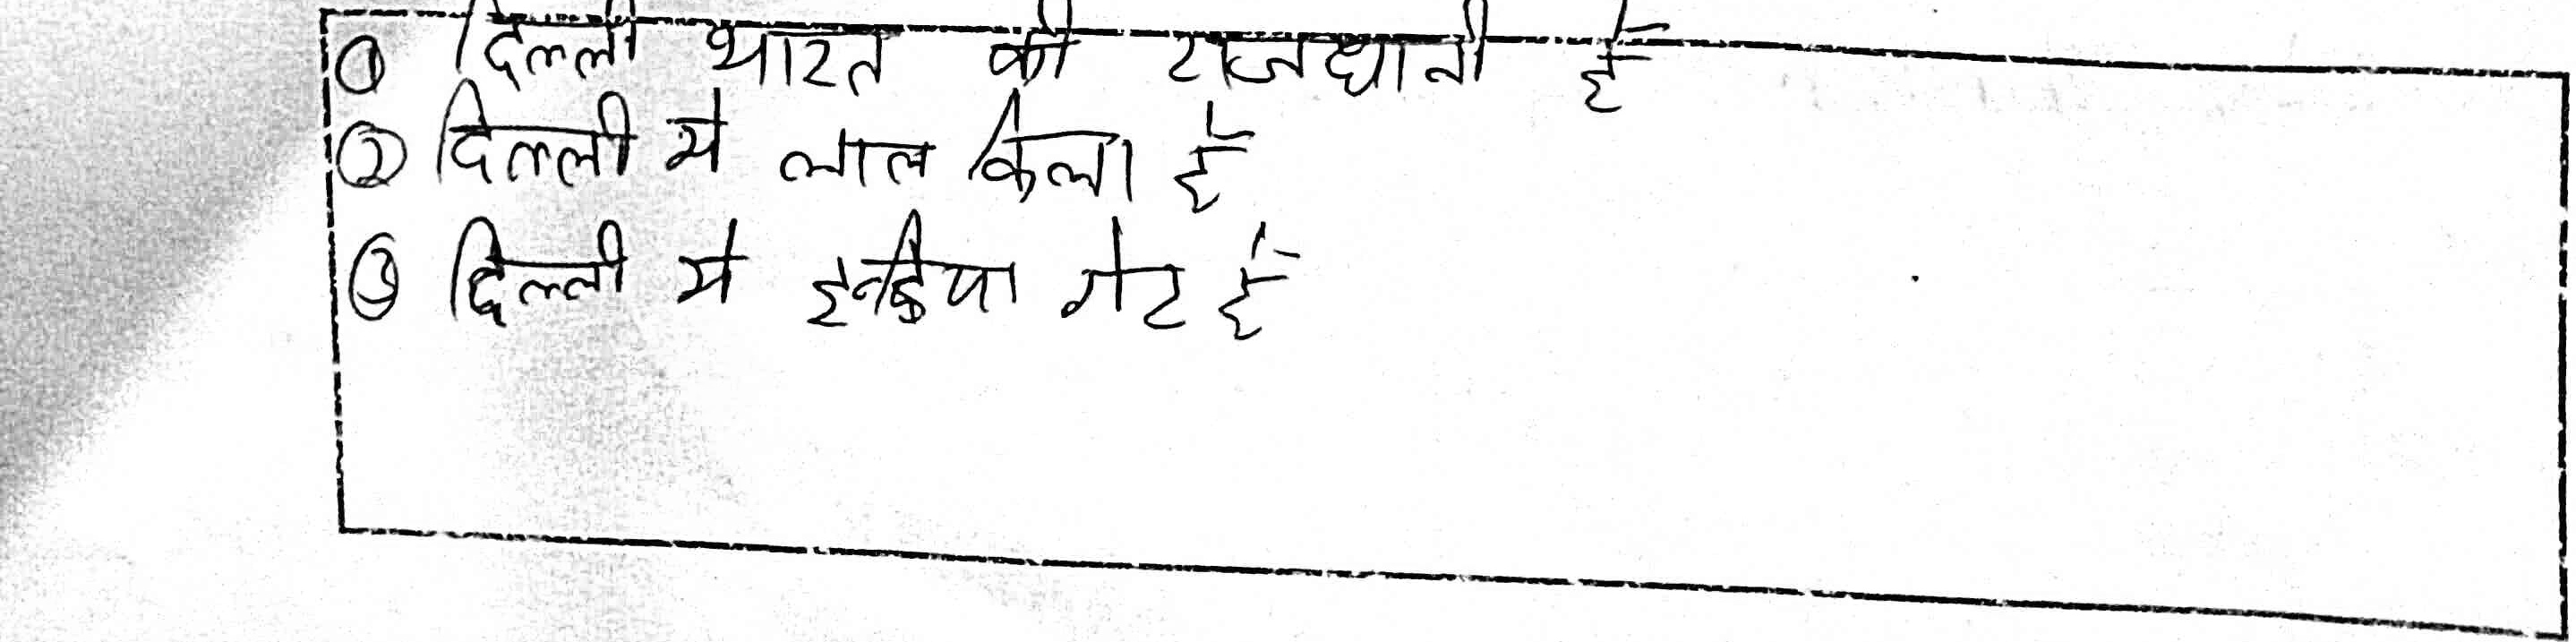 ① दिल्ली भारत की राजधानी है
② दिल्ली मे लाल किला है
③ दिल्ली मे इनडिया गेट है